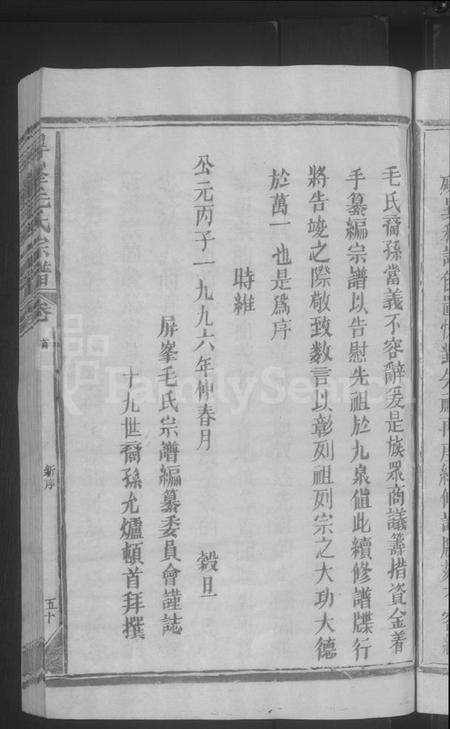 毛氏裔孫當義不容辭爰是族眾商議籌措資金着
手纂編宗譜以告慰先祖於九泉值此續修譜牒行
將告竣之際敬致數言以彰列祖列宗之大功大德
於萬一也是為序
時維
公元丙子一九九六年仲春月 穀旦
屏峯毛氏宗譜編纂委員會謹誌
十九世裔孫允爐頓首拜撰
毛氏宗譜 卷首
新序
五十
FamilySearch